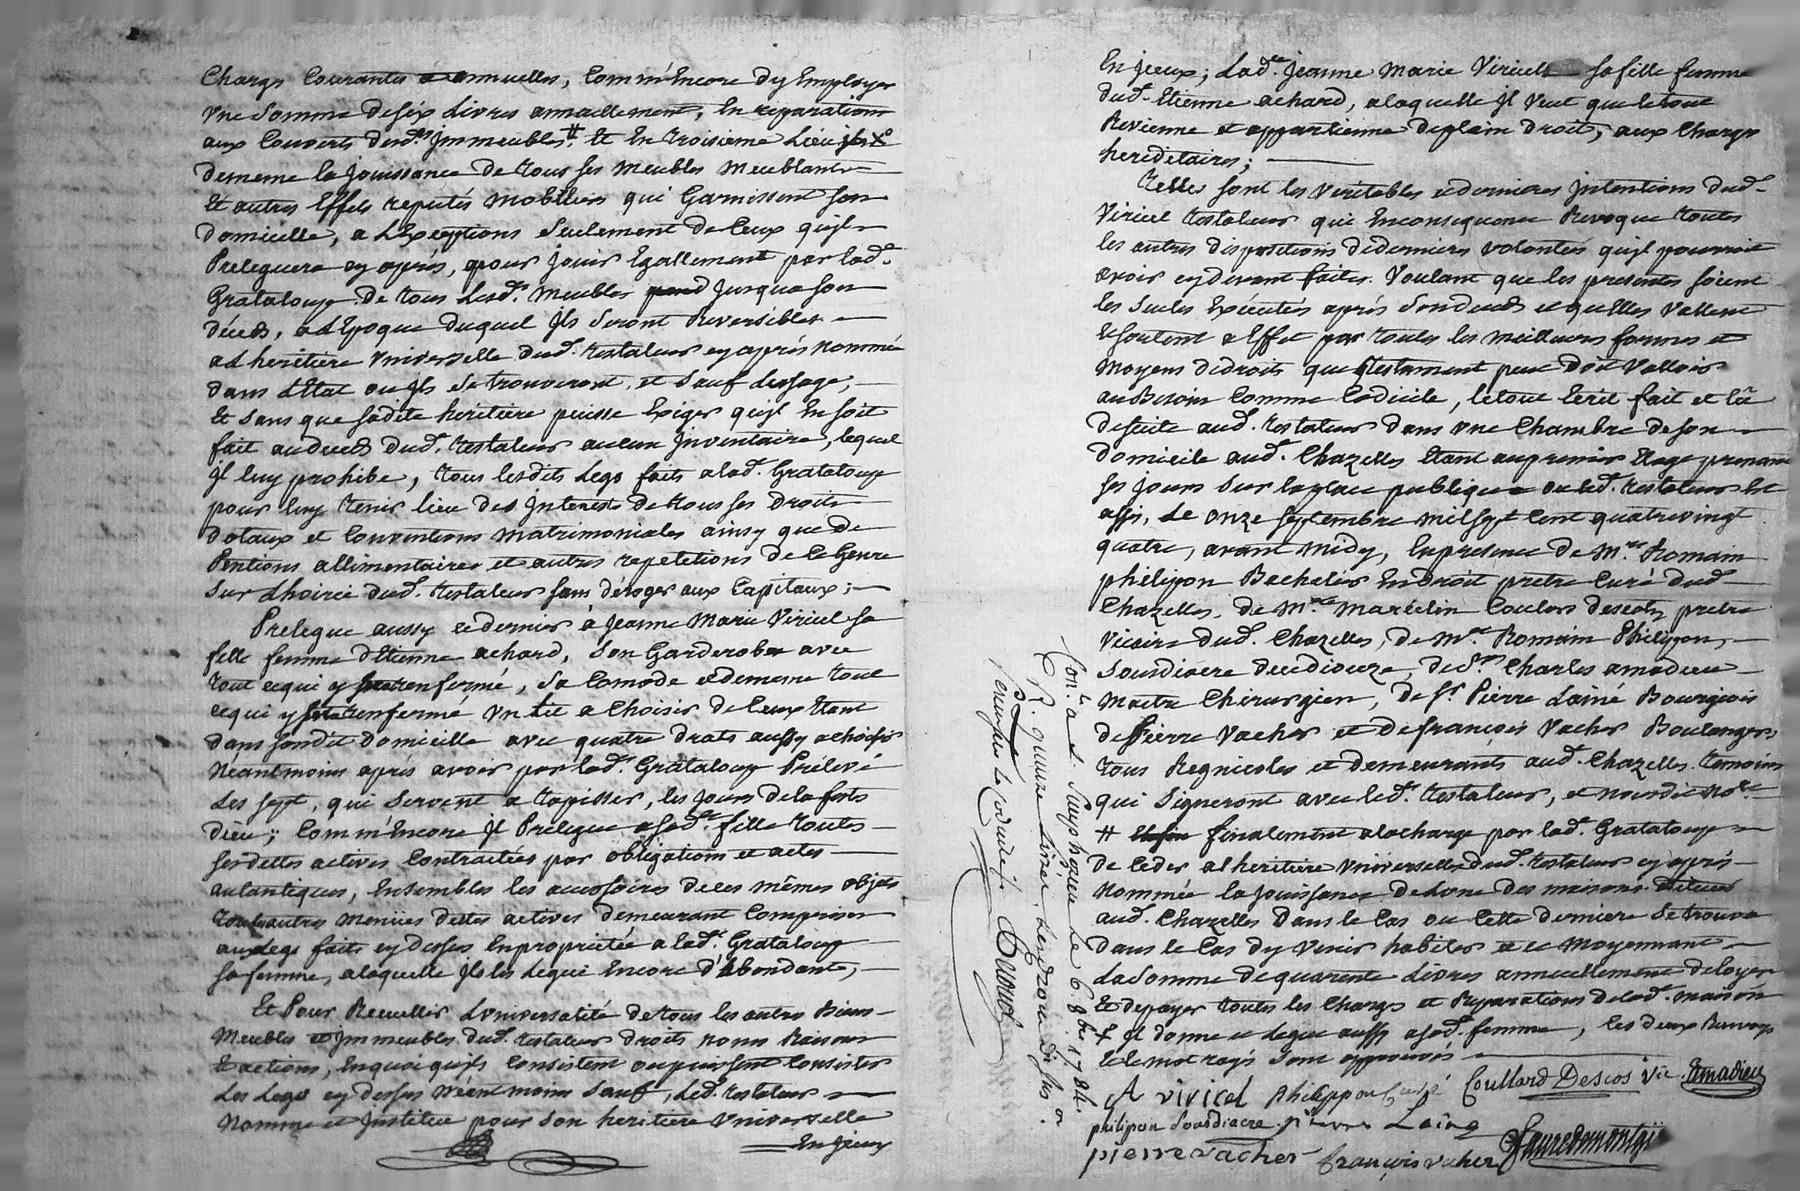 Charges Courantes et annuelles, Comm'Encore dy Employer
Une Somme de six Livres annuellement, En reparations
aux Couverts desd.ts Jmmeubles # Et En troisieme Lieu X
demême la Jouissance de tous ses Meubles Meublants
Et autres Effets reputés mobilliers qui Garnissent son
domicille, a LExceptions Seulement de Ceux qu'jl
Preleguera cy après, pour jouir Egallement par lad.e
Grataloup de tous Lesd.ts Meubles Jusqua son
décès, a LEpoque duquel Jls Seront Reversibles
a L heritière Universelle dud. testateur cy après nommée
dans LEtat ou Jls se trouveront, et Sauf Lusage,
Et sans que sadite heritière puisse Exiger qu'jl En soit
fait au decès dud. testateur aucun Jnventaire, lequel
Jl luy prohibe, tous lesdits Legs faits a lad. Grataloup
pour luy tenir lieu des Jnterests de tous ses droits
dotaux et Conventions Matrimoniales ainsy que de
Pentions allimentaires et autres repetitions de ce Genre
Sur Lhoirie dud. testateur sans déroger aux Capitaux;
Prelegue aussy ce dernier à Jeanne Marie Viricel sa
fille femme d'Etienne achard, son Garderobe avec
tout cequi y renfermé, Sa Comode et demême tout
cequi y renfermé Un Lit a Choisir de Ceux Etant
dans sondit domicille avec quatre drats aussy a choisir
Néantmoins après avoir par lad. Grataloup Prélevé
Les sept, qui Servent a tapisser, les jours de la feste
dieu; Comm'Encore Jl Prelegue a sad.te fille toutes
ses dettes actives Contractées par obligations et actes
autantiques, Ensembles les accessoires de ces mêmes objets
toutes autres Menües dettes actives demeurant Comprises
au Legs faits cy dessus En proprietée a lad.e Grataloup
sa femme, a laquelle Jl les Legue Encore d'abondant,
Et Pour Recueillir Luniversalité de tous les autres Biens
Meubles et Jmmeubles dud. testateur droits noms Raisons
Et actions, En quoi qu'ils Consistent ou puissent Consister
Les Legs cy dessus Néantmoins Sauf, Led. testateur
Nomme et Jnstitue pour Son heritiere Universelle
En jceux
En jceux; Lad.te Jeanne Marie Viricel sa fille femme
dud. Etienne achard, a laquelle Jl Veut que le tout
Revienne et appartienne de plein droit, aux Charges
hereditaires;
Telles sont les Veritables et dernieres Jntentions dud.
Viricel testateur qui En consequence Revoque toutes
les autres dispositions de derniere volontés qu'jl pourroit
avoir cy devant faites. Voulant que les presentes soient
les Seules Executés après Son decès et qu'elles Vallent
Et sortent a Effet par toutes les meilleures formes et
Moyens de droits que testament peut Doit Valloir
au Besoin Comme Codicile, le tout Ecrit fait et lû
de suite aud. testateur dans une Chambre de son
domicile aud. Chazelles Etant au premier Etage prenant
ses jours Sur la place publique ou led. testateur Est
assis, Le onze septembre mil sept Cent quatrevingt
quatre, avant midy, En presence de M.re Romain
phélipon Bachelier En droit pretre Curé dud.
Chazelles, de M.re Marcelin Coulard descotz, pretre
Vicaire dud. Chazelles, de M.re Romain Philippon,
Sousdiacre du diocèze, de S.r Charles amadieu
Maitre Chirurgien, de S.r Pierre Lainé Bourgeois
de Pierre Vacher et de françois Vacher Boulangers
tous Regnicoles et demeurants aud. Chazelles temoins
qui Signeront avec led.t testateur, et nousdit No.re
# finalement a la charge par lad. Grataloup
de Ceder a L heritière Universelle dud. testateur cy après
Nommée la Jouissance de Lune des maisons
aud. Chazelles dans le Cas ou Cette derniere se trouva
dans le Cas dy Venir habiter et ce Moyennant
La Somme de quarente Livres annuellement de loyer
Et de payer toutes les Charges et Reparations de lad. maison
X Jl donne et Legue aussy a sad. femme, les deux Renvoys
Et le mot rayé Sont approuvés
A viricel Philippon Curé Coullard Descos Vic. Amadieu
philipon Sousdiacre pierre Lainé
pierre vacher françois vacher Fauredemontgii
Con.lé a S.t Simphorien Le 6 8bre 1784.
R. quinze Livres,